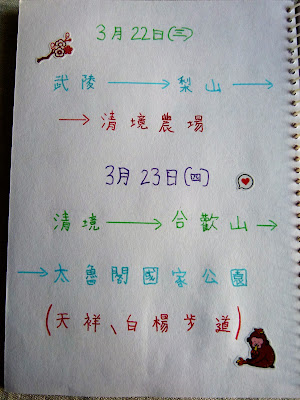 3月22日(三)
武陵→梨山→
→清境農場
3月23日(四)
清境→合歡山→
→太魯閣國家公園
(天祥、白楊步道)